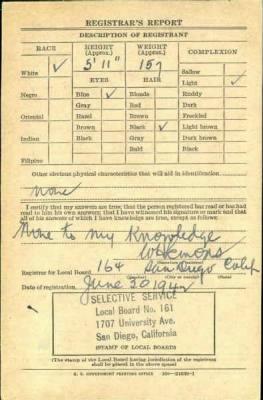 REGISTRAR'S REPORT
DESCRIPTION OF REGISTRANT
RACE HEIGHT (Approx.) WEIGHT (Approx.) COMPLEXION
White ✓ 5' 11" 157 Sallow
EYES HAIR Light ✓
Negro Blue ✓ Blonde Ruddy
Gray Red Dark
Oriental Hazel Brown Freckled
Brown Black ✓ Light brown
Indian Black Gray Dark brown
Bald Black
Filipino
Other obvious physical characteristics that will aid in identification
None
I certify that my answers are true; that the person registered has read or has had read to him his own answers; that I have witnessed his signature or mark and that all of his answers of which I have knowledge are true, except as follows:
None to my Knowledge
Registrar for Local Board 164 San Diego Calif
(Number) (City or county) (State)
Date of registration June 30 1942
SELECTIVE SERVICE
Local Board No. 161
1707 University Ave.
San Diego, California
(STAMP OF LOCAL BOARD)
(The stamp of the Local Board having jurisdiction of the registrant shall be placed in the above space)
U. S. GOVERNMENT PRINTING OFFICE